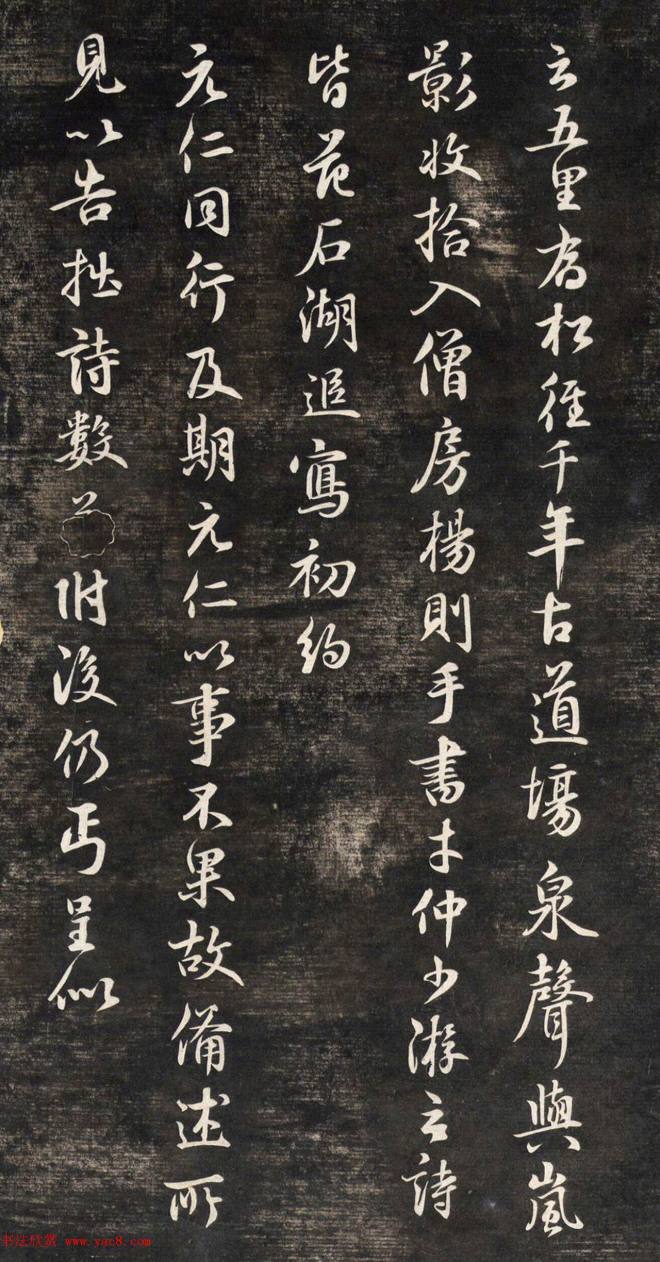 云五里青松徑千年古道場泉聲與嵐
影收拾入僧房楊則手書才仲少游之詩
皆范石湖追寫初約
元仁同行及期元仁以事不果故備述所
見以告拙詩數首附後仍丐呈似
书法欣赏 www.yac8.com